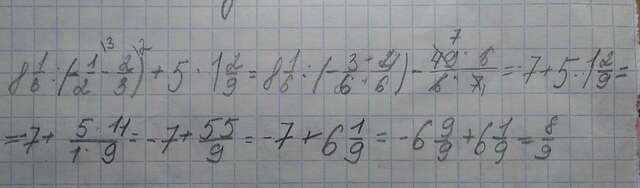 8 1/6 : (-1/2 \3 - 2/3 \2) + 5 · 1 2/9 = 8 1/6 : (-3/6 + 4/6) - 49 · 6 / 6 · 7 7 1 = -7 + 5 · 1 2/9 =
= -7 + 5 · 11 / 1 · 9 = -7 + 55/9 = -7 + 6 1/9 = -6 9/9 + 6 1/9 = 8/9